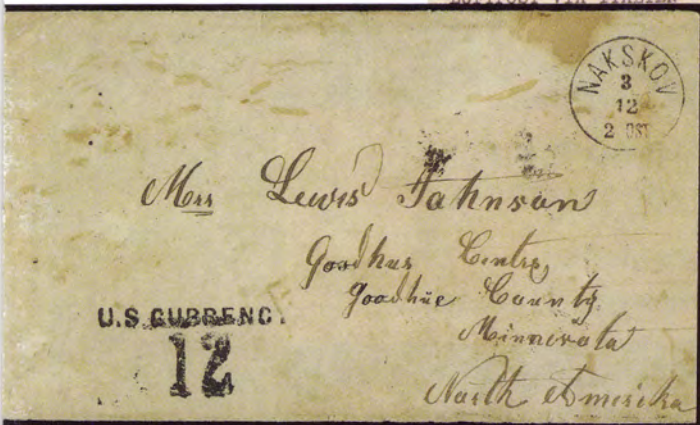 NAKSKOV
3
12
2 OST
Mrs Lewis Johnson
Goodhue Centre,
Goodhüe County
Minnesota
North Amerika
U.S CURRENC.
12